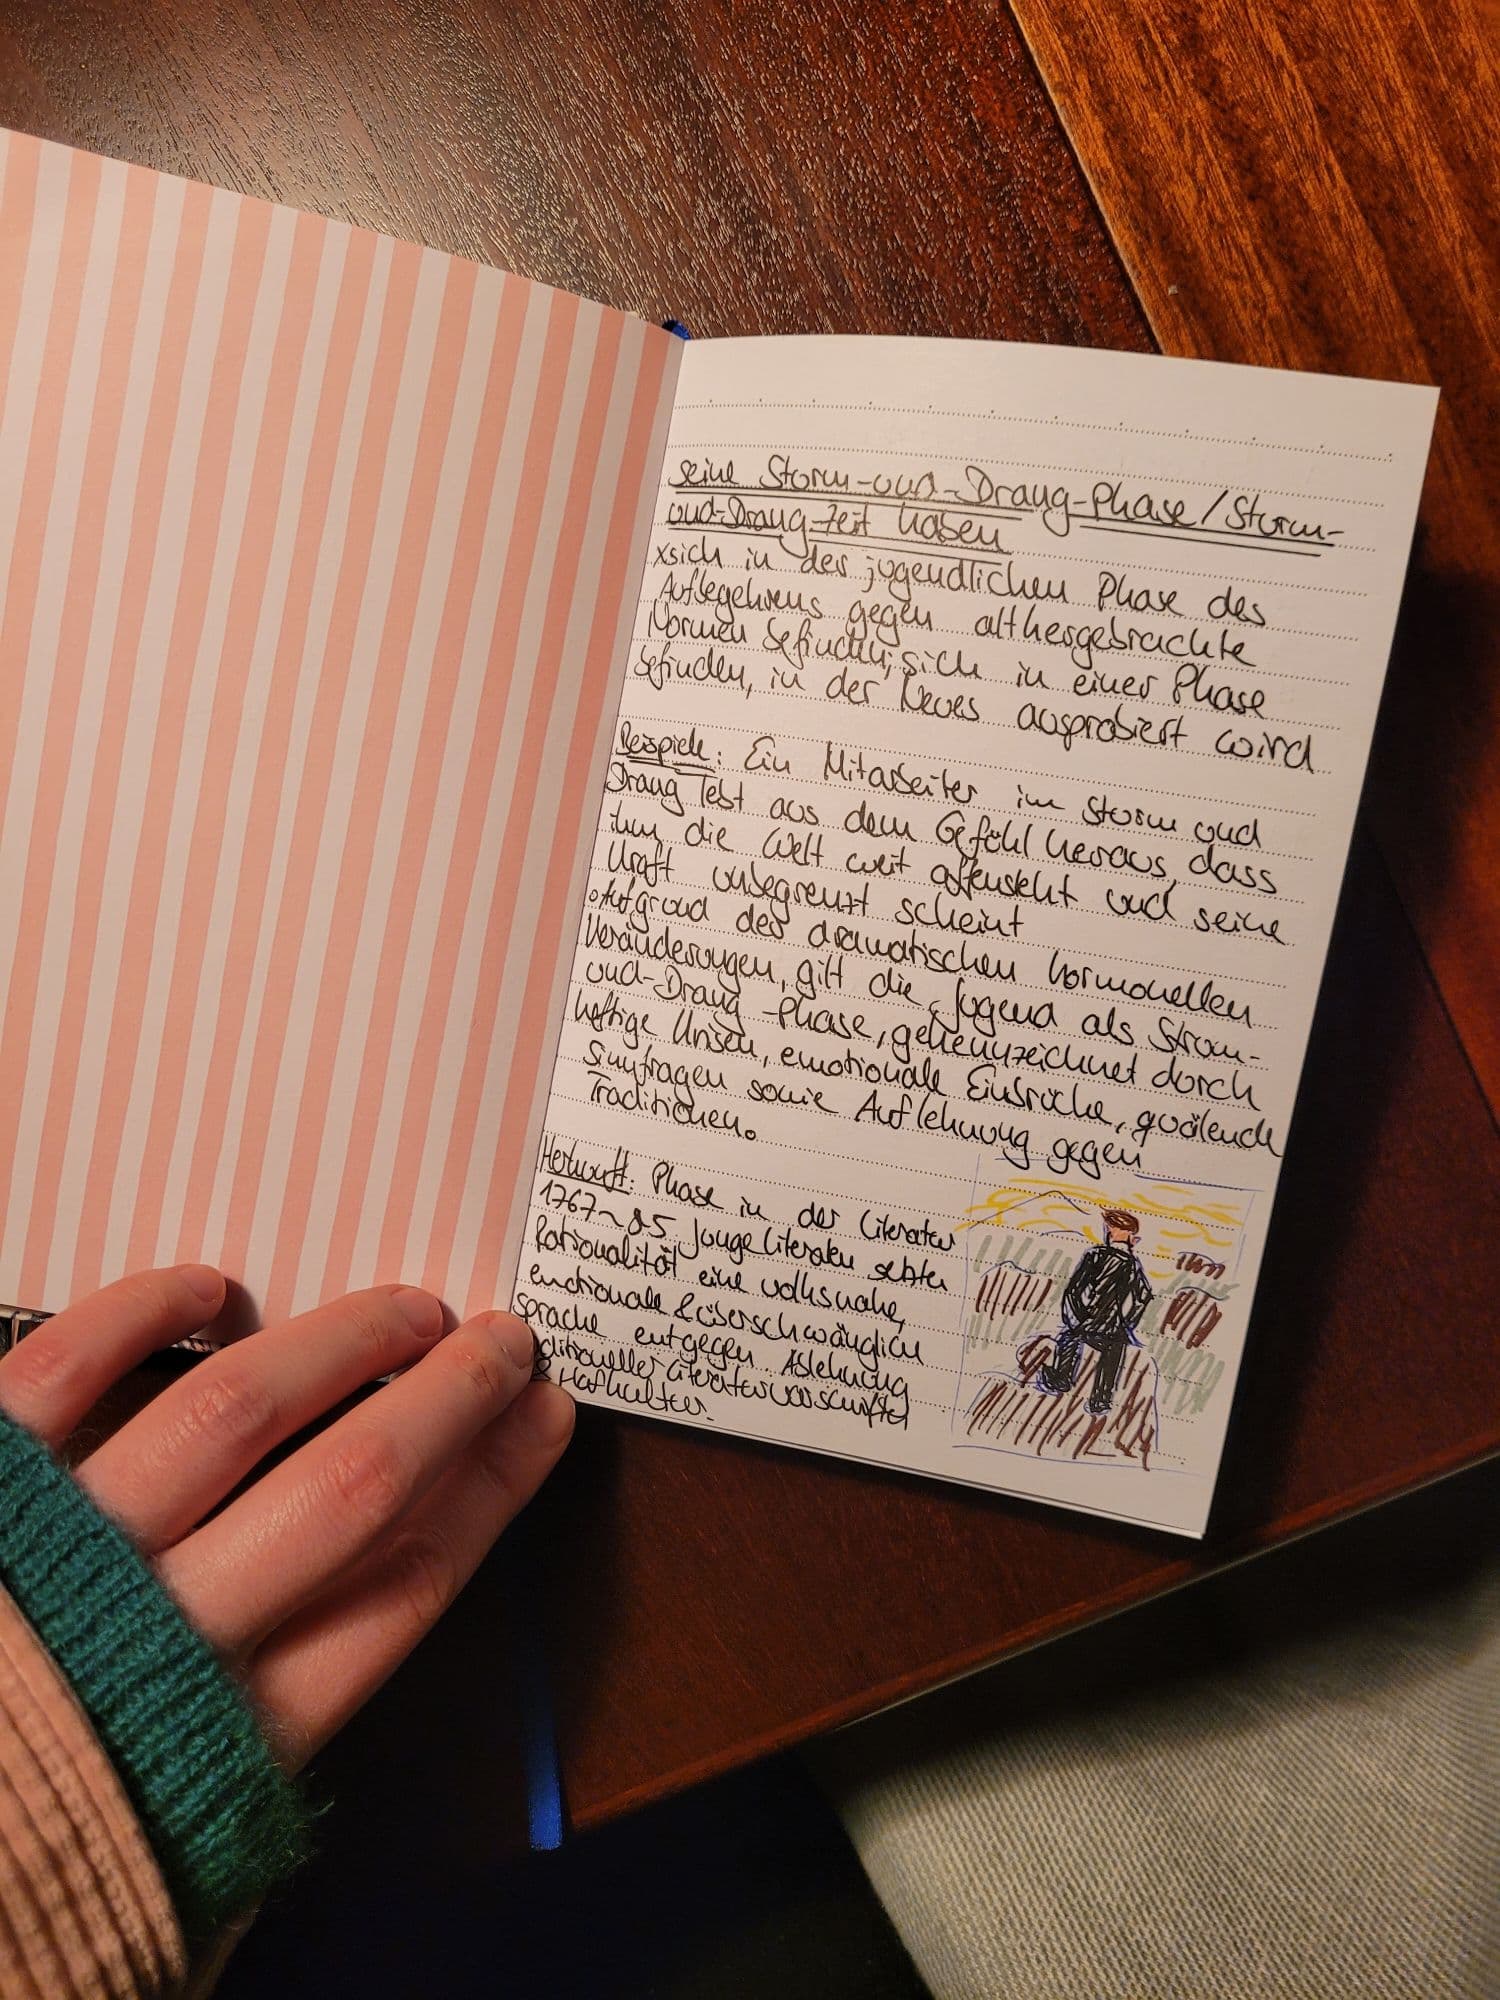 seine Sturm-und-Drang-Phase/Sturm-
und-Drang-Zeit haben
xsich in der jugendlichen Phase des
Aufbegehrens gegen althergebrachte
Normen befinden; sich in einer Phase
befinden, in der Neues ausprobiert wird
Beispiele: Ein Mitarbeiter im Sturm und
Drang lebt aus dem Gefühl heraus, dass
ihm die Welt weit offensteht und seine
Kraft unbegrenzt scheint
∘Aufgrund der dramatischen hormonellen
Veränderungen, gilt die Jugend als Strum-
und-Drang-Phase, gekennzeichnet durch
heftige Krisen, emotionale Einbrüche, quälende
Sinnfragen sowie Auflehnung gegen
Traditionen.
Herkunft: Phase in der Literatur
1767-85. Junge Literaten setzten
Rationalität eine volksnahe,
emotionale & überschwänglich
sprache entgegen. Ablehnung
aditioneller Literaturvorschrifte
& Hofkultur.